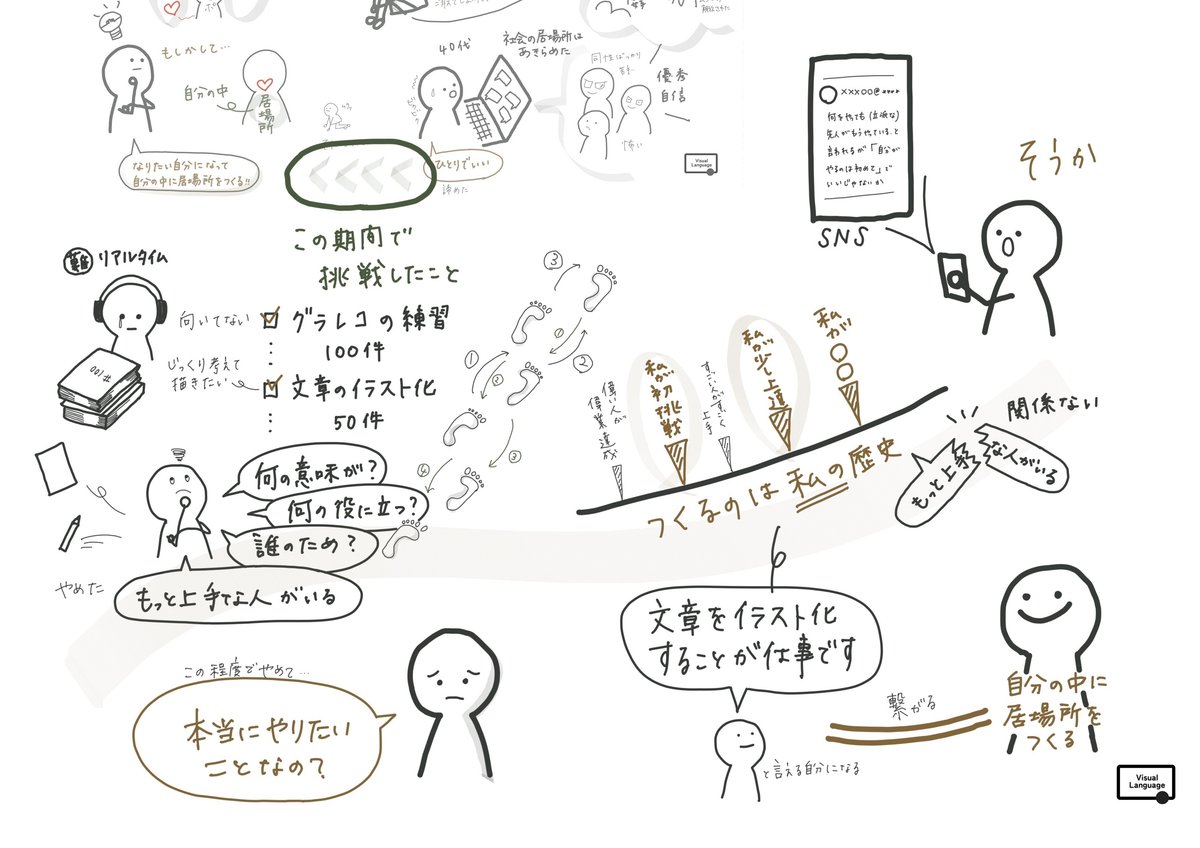 もしかして…
自分の中
居場所
なりたい自分になって
自分の中に居場所をつくる!!
40代
社会の居場所は
あきらめた
同性ばっかり
優秀
自信
怖い
ひとりでいい
諦めた
Visual
Language
この期間で
挑戦したこと
難 リアルタイム
向いてない
グラレコの練習
100件
じっくり考えて
描きたい
文章のイラスト化
50件
#100
何の意味が?
何の役に立つ?
誰のため?
もっと上手な人がいる
やめた
③
①
②
①
②
④
③
この程度でやめて…
本当にやりたい
ことなの?
XXXOO@xxxx
何をやっても(立派な)
先人がもうやっている。と
言われるが「自分が
やるのは初めて」で
いいじゃないか
SNS
そうか
偉い人が
偉業達成
私が初挑戦
すごい人がすごく
上手
私が少し上達
私が○○
つくるのは私の歴史
関係ない
もっと上手
な人がいる
文章をイラスト化
することが仕事です
と言える自分になる
繋がる
自分の中に
居場所を
つくる
Visual
Language